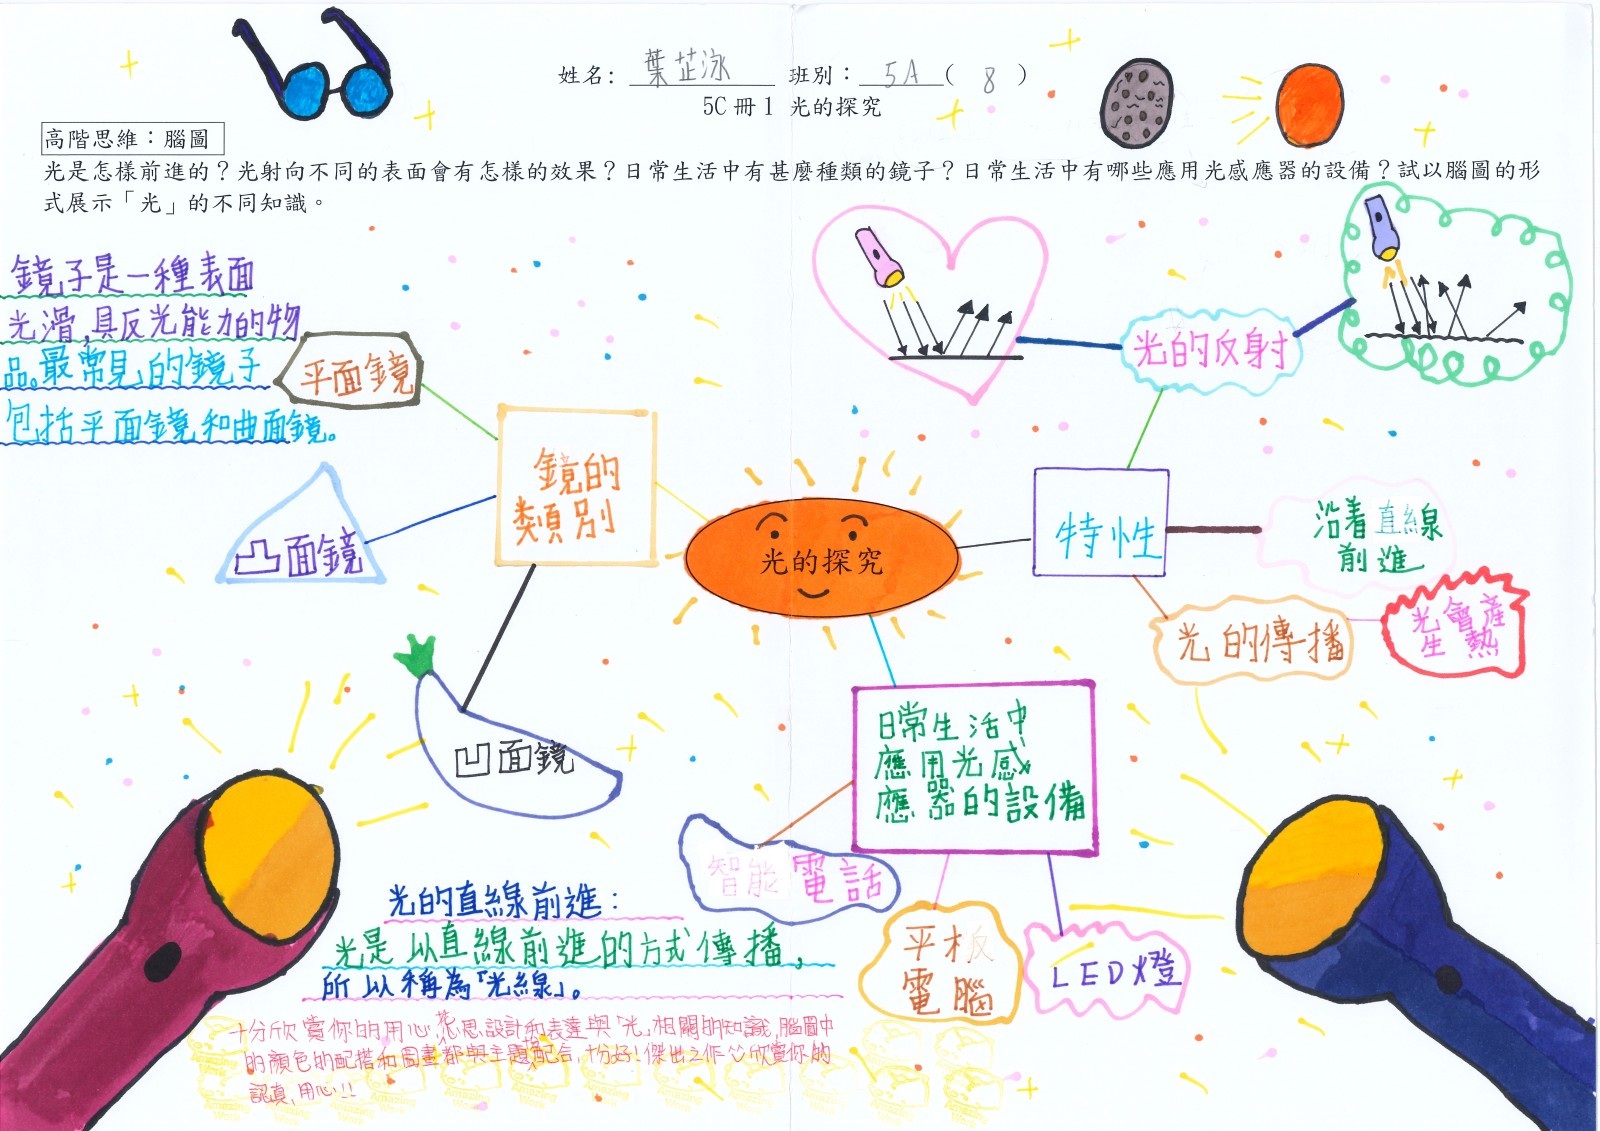 姓名: 葉芷泳 班別：5A( 8 )
5C 冊 1 光的探究
高階思維：腦圖
光是怎樣前進的？光射向不同的表面會有怎樣的效果？日常生活中有甚麼種類的鏡子？日常生活中有哪些應用光感應器的設備？試以腦圖的形
式展示「光」的不同知識。
鏡子是一種表面
光滑,具反光能力的物
品。最常見的鏡子
包括平面鏡和曲面鏡。
平面鏡
凸面鏡
凹面鏡
鏡的
類別
光的探究
特性
光的反射
沿着直線
前進
光的傳播
光會產
生熱
日常生活中
應用光感
應器的設備
智能電話
平板
電腦
LED燈
光的直線前進：
光是以直線前進的方式傳播,
所以稱為「光線」。
十分欣賞你的用心,花心思設計和表達與「光」相關的知識,腦圖中
的顏色的配搭和圖畫都與主題配合,十分好!傑出之作,欣賞你的
認真,用心!!